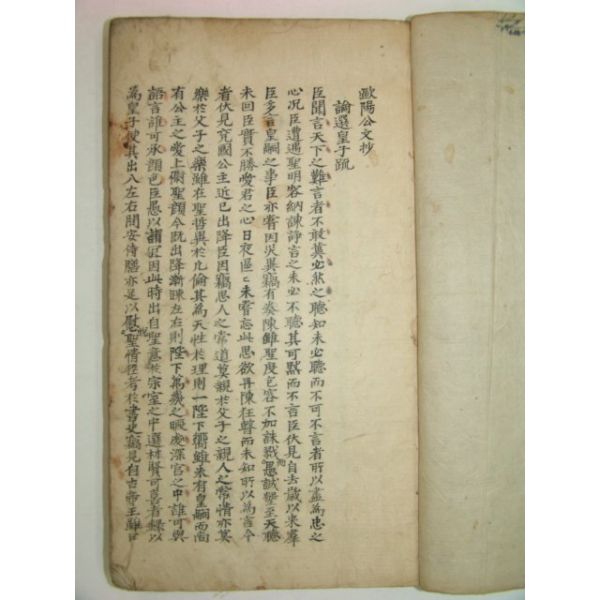 歐陽公文抄
論選皇子疏
臣聞言天下之難言者不敢冀必然之聽知未必聽而不可不言者所以盡為忠之
心况臣遭遇聖明容納諫諍言之未必不聽其可默而不言臣伏見自去歲以來羣
臣多言皇嗣之事臣亦嘗因災異竊有奏陳雖聖度包容不加誅戮愚誠懇至天聽
未回臣實不勝愛君之心日夜區〻未嘗忘此思欲再陳狂瞽而未知所以為言今
者伏見兗國公主近已出降臣因竊思人之常道莫親於父子之親人之常情亦莫
樂於父子之樂雖在聖哲異於凡倫其為天性於理則一陛下嚮雖未有皇嗣而尚
有公主之愛上慰聖顏今既出降漸踈左右則陛下萬幾之暇處深宮之中誰可與
語言誰可承顏色臣愚以謂宜因此時出自聖意於宗室之中選材賢可喜者錄以
為皇子使其出入左右問安侍膳亦足以慰聖情臣考於書史竊見自古帝王